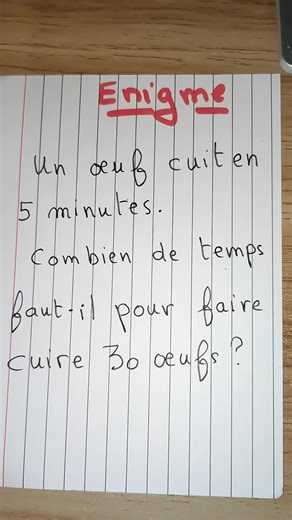 Enigme
Un œuf cuit en
5 minutes.
Combien de temps
faut-il pour faire
cuire 30 œufs ?